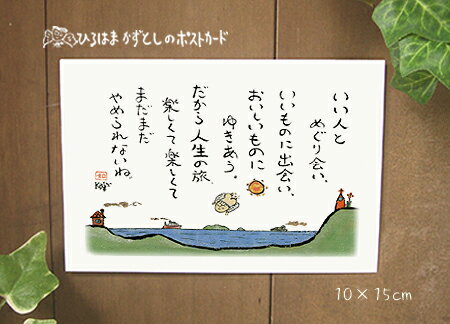 ひろはまかずとしのポストカード
いい人と
めぐり会い、
いいものに出会い、
おいしいものに
ゆきあう。
だから人生の旅
楽しくて楽しくて
まだまだ
やめられないね。
10×15cm